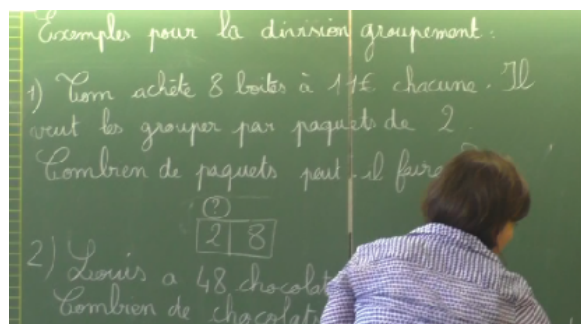 Exemples pour la division groupement :
1) Tom achète 8 boites à 11€ chacune. Il
veut les grouper par paquets de 2.
Combien de paquets peut-il faire
?
2 8
2) Louis a 48 chocolat
Combien de chocolat